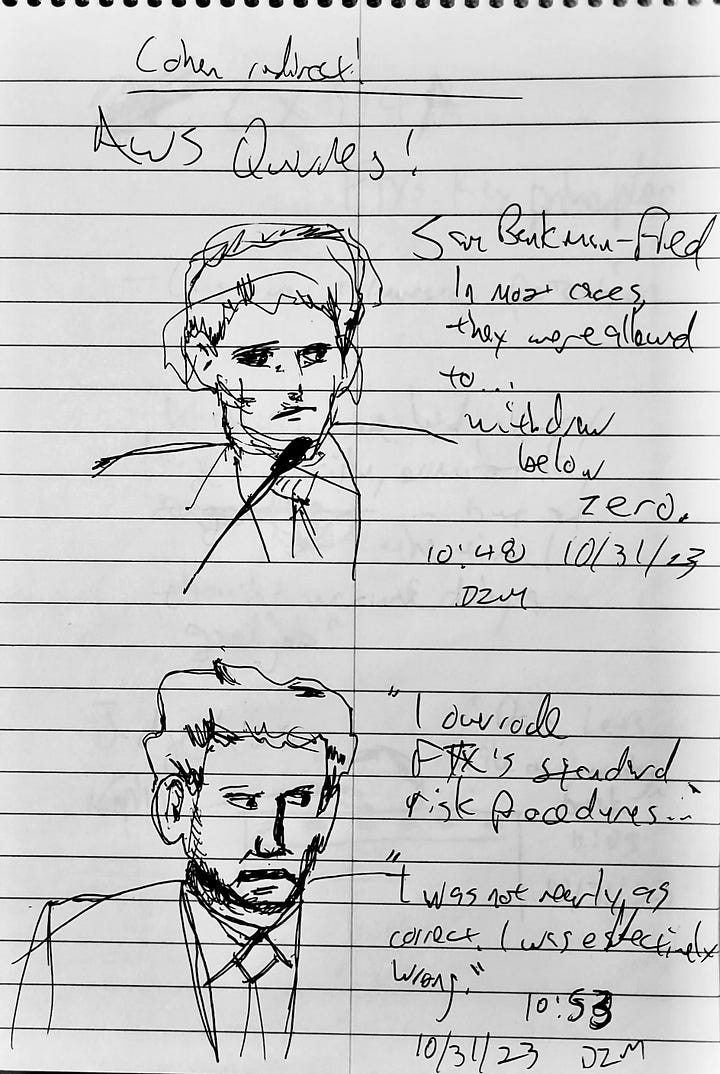 Cohen redirect!
AWS Queues!
Sam Bankman-Fried
In most cases,
they were allowed
to...
withdraw
below
zero.
10:48 10/31/23
DZM
"I overrode
FTX's standard
risk procedures...
"I was not nearly as
correct. I was effectively
wrong."
10:53
10/31/23 DZM